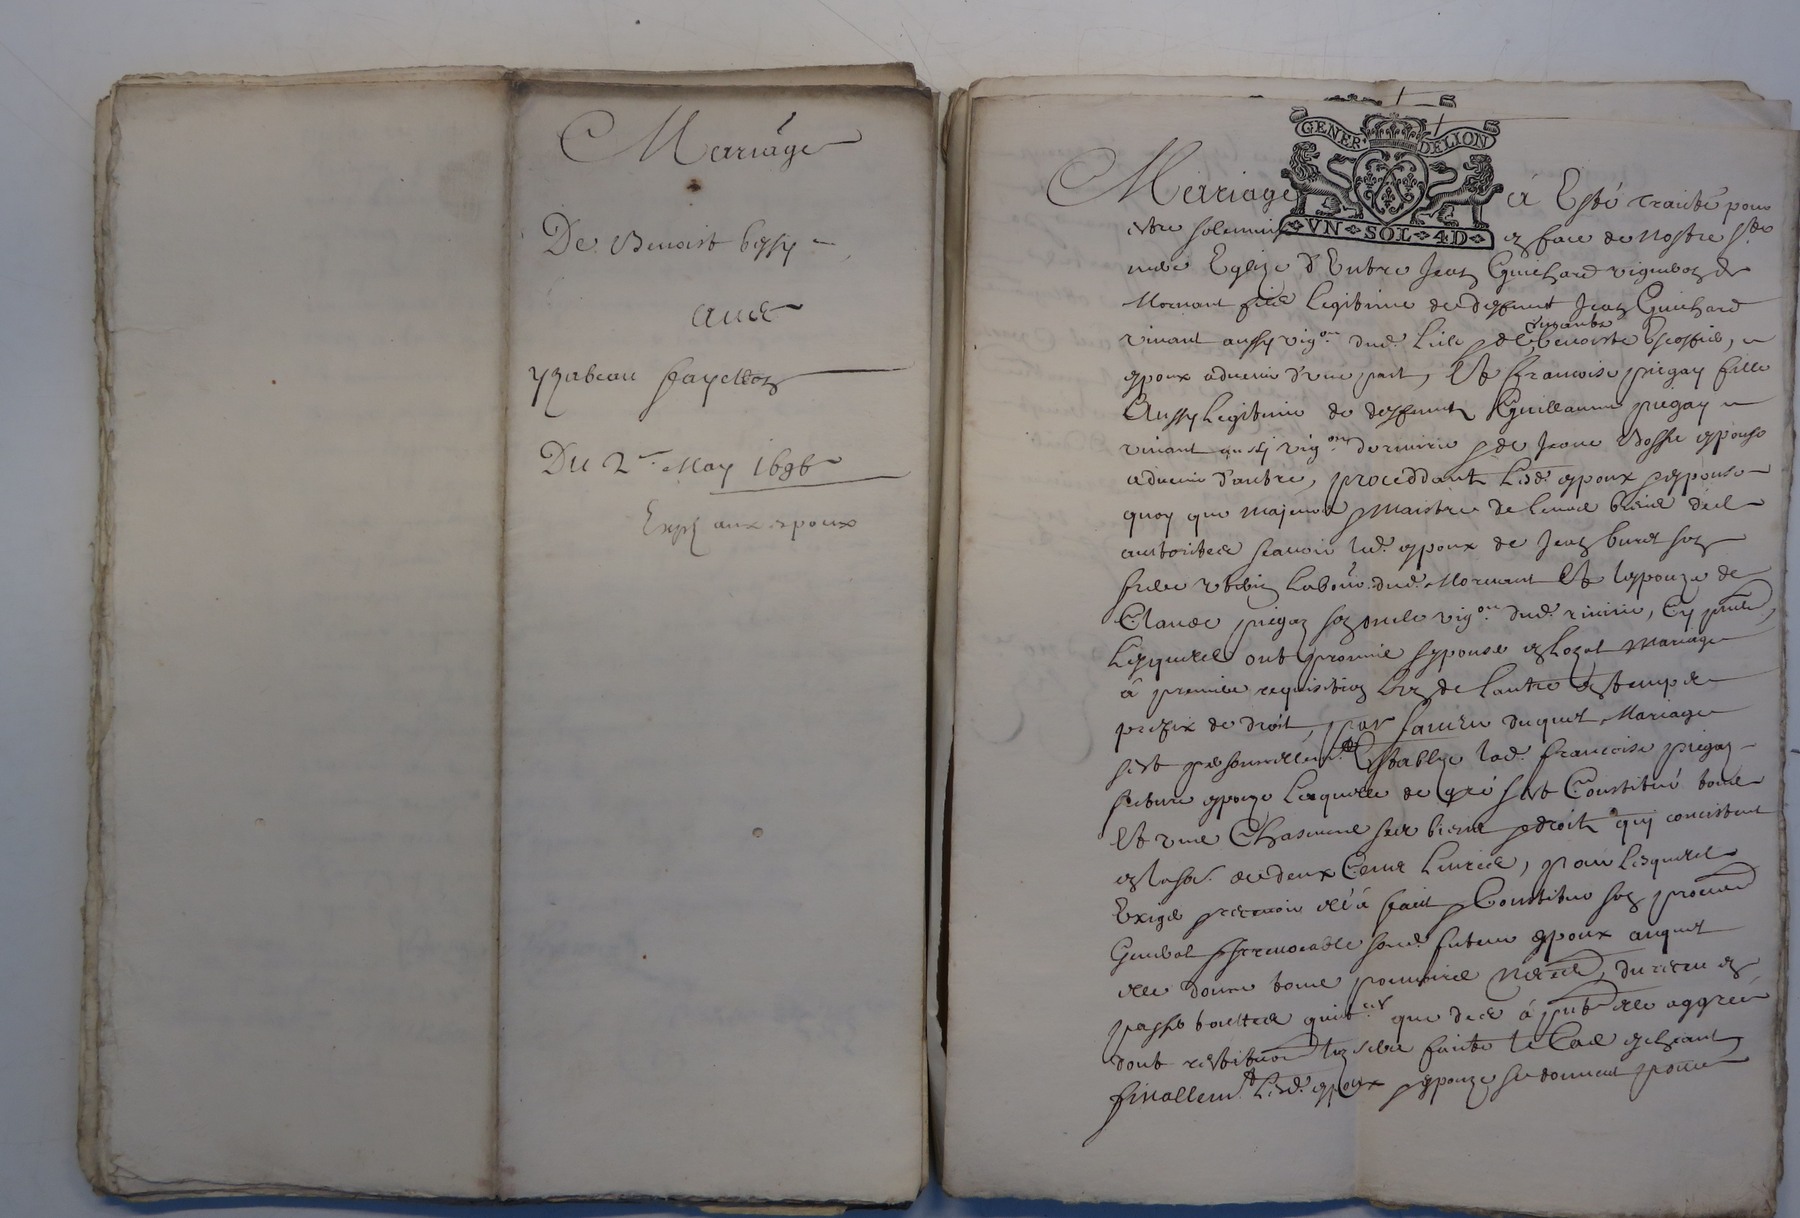 Mariage
De Benoist bessy
avec
yzabeau fayolle
Du 2e May 1696
Expe aux epoux
GENER DELION
VN SOL 4D
Mariage a Esté traitté pour
estre solemnizé en face de Nostre Ste
mere Eglize d'Entre Jean Guichard vigneron de
Mornant filz legitime de deffunt Jean Guichard
vivant aussy vigon dud. lieu & de vivante benoiste
epoux advenir d'une part, Et francoise piegay fille
Aussy legitime de deffunt Guillaume piegay
vivant aussy vigon & de Jeane espouse
advenir d'autre, procedant lesd. epoux & epouse
quoy que majeurs & maistre de leurs biens de l
authorités scavoir led. epoux de Jean buret son
labour. dud. Mornant Et lepouze de
Claude piegay son oncle vigon dud.
Lesquels ont promis sepouser en loyal Mariage
à premiere requisition L'un de l'autre & temps
prefix de droit, par faveur duquel Mariage
sest personnellemt Establye lad. francoise piegay
future epouze laquelle de gré sest Constitué tous
Et uns Chascuns ses biens & droits qui concistent
en la so. de deux Cens Livres, pour lesquels
Exiger & recevoir elle a fait & Constitué son procur
General & Irrevocable sond. futur epoux auquel
elle donne tous pouvoirs du receu en
passer touttes quitces que des à pnt elle aggrée
dont restituon en sera faitte le Cas escheant
finallemt Lesd. epoux & epouze se donnent pour